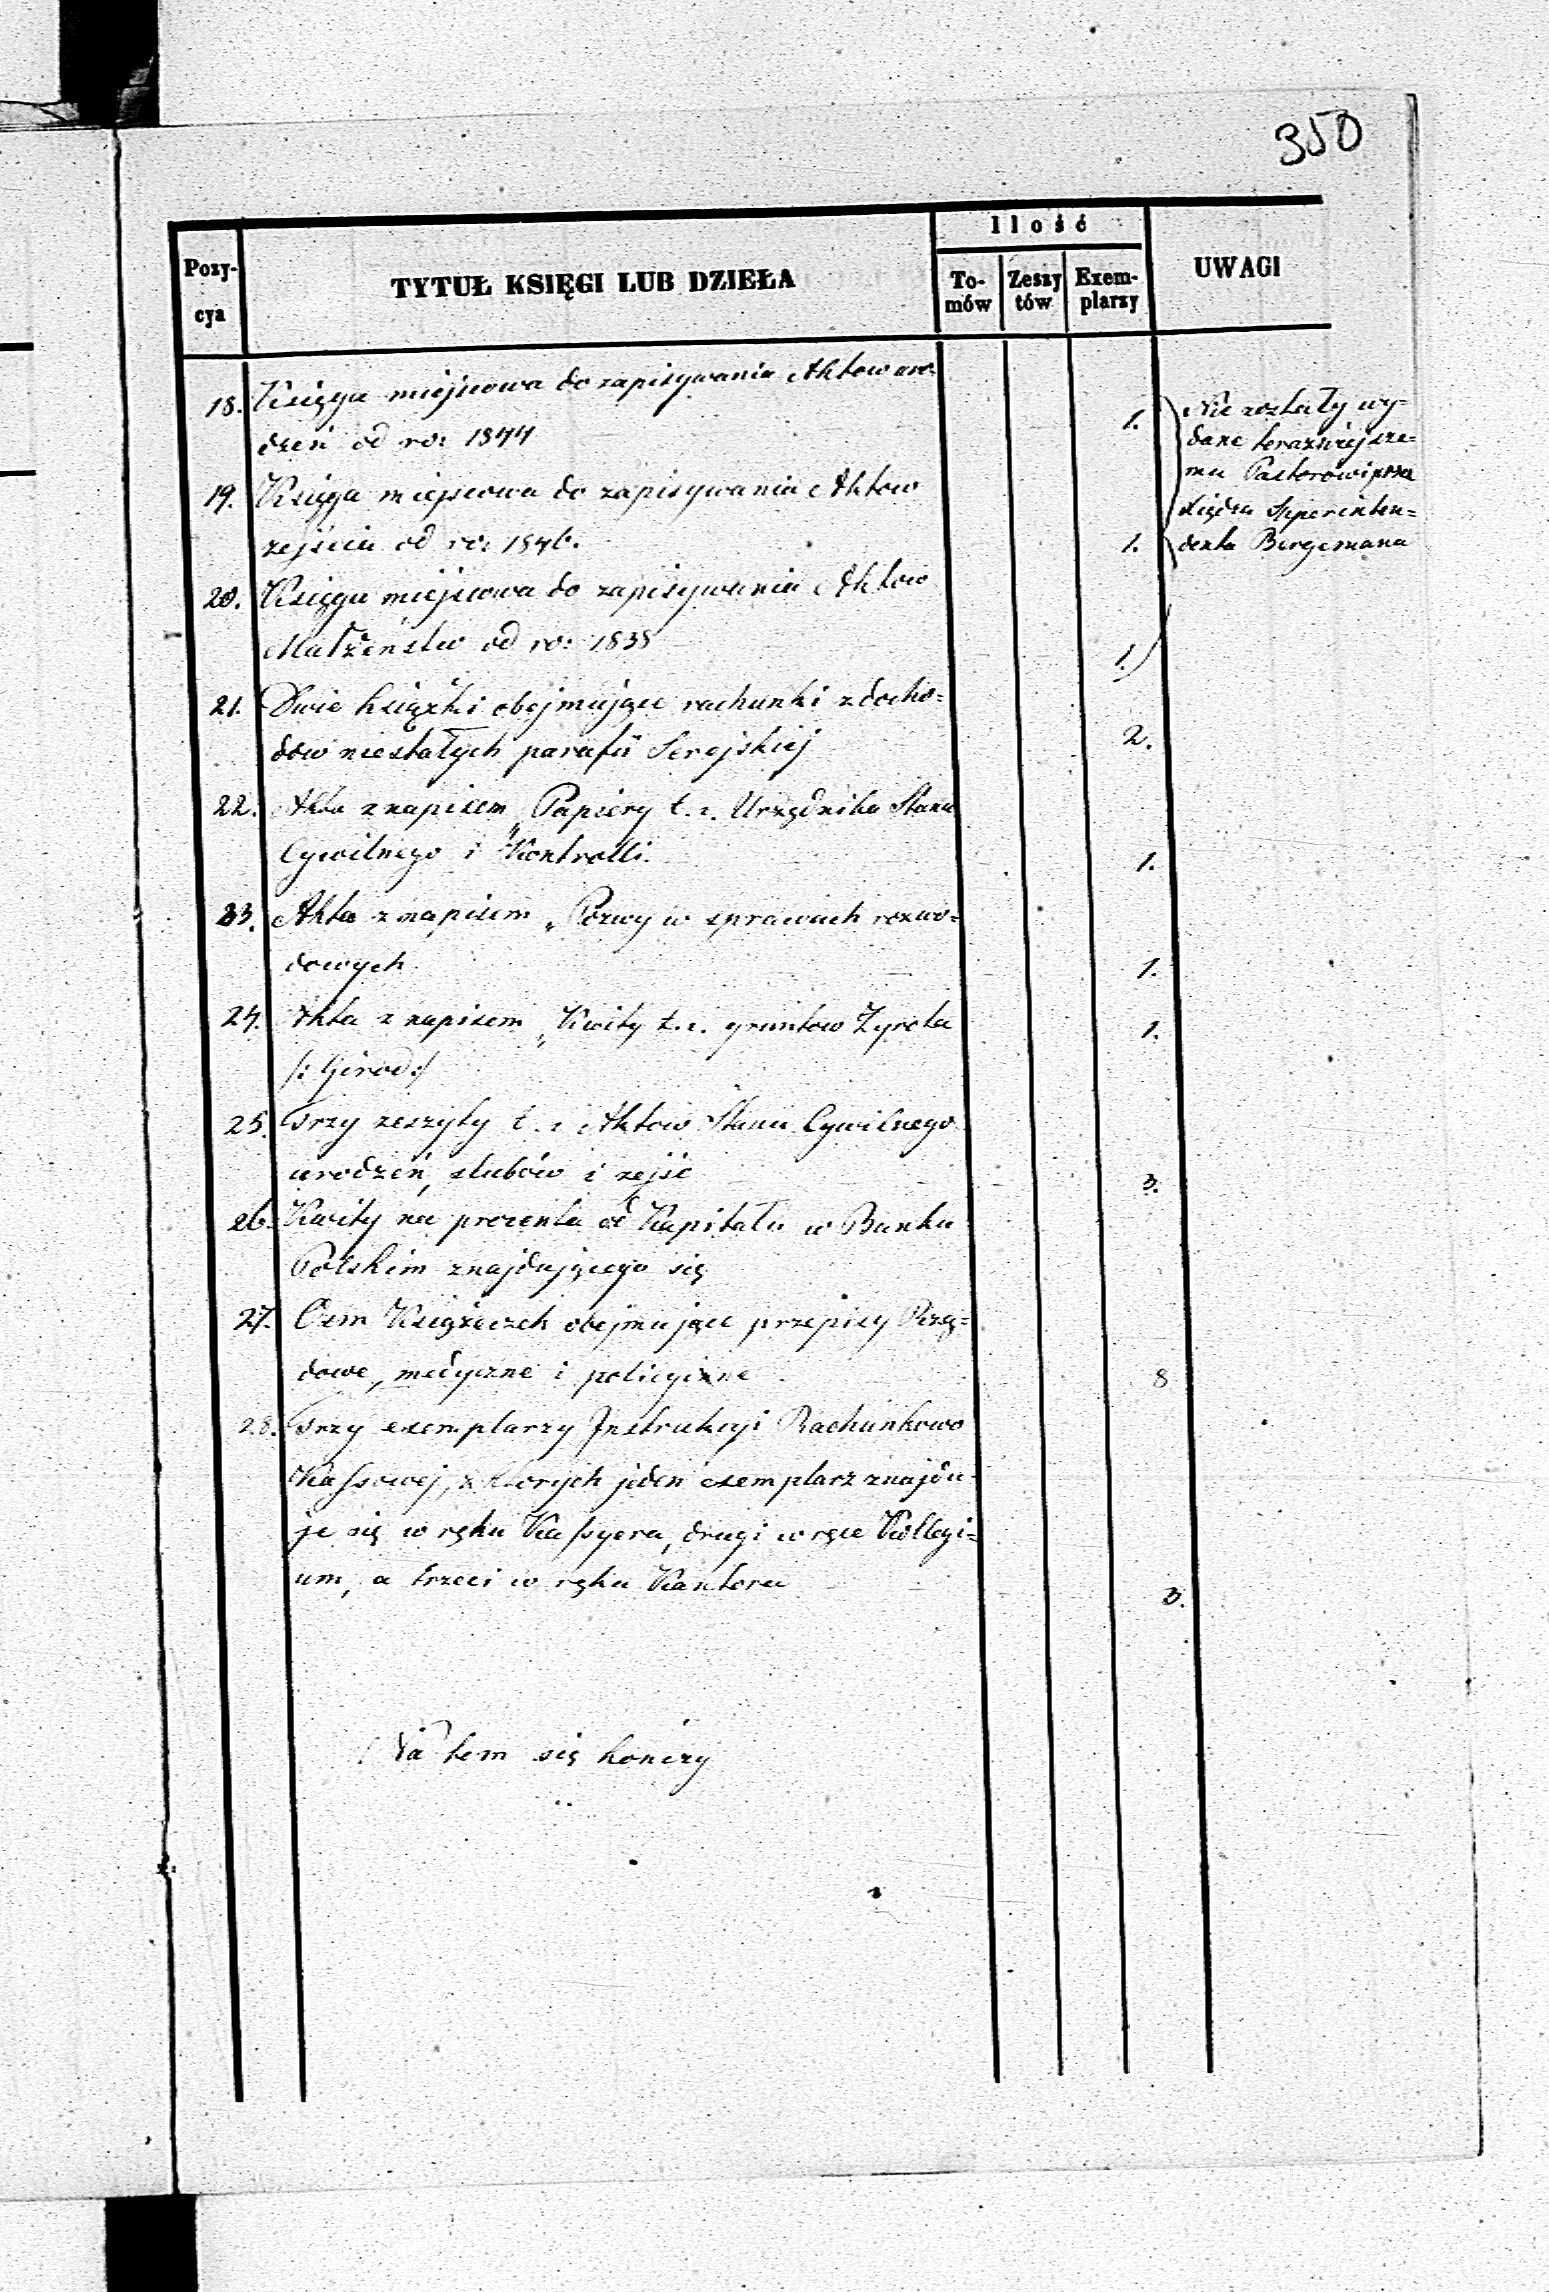 350
Pozy-
cya
TYTUŁ KSIĘGI LUB DZIEŁA
Ilość
To-
mów
Zeszy
tów
Exem-
plarzy
UWAGI
18. Księga miejscowa do zapisywania Aktow uro-
dzeń od ro: 1844 1.
19. Księga miejscowa do zapisywania Aktow
zejścia od ro: 1846. 1.
Nie zostały wy-
dane teraźniejsze-
mu Pastorowi przez
Księdza Superinten=
denta Bergemana
20. Księga miejscowa do zapisywania Aktow
Małżeństw od ro: 1838 1.
21. Dwie książki obejmujące rachunki z docho=
dów niestałych parafii Serejskiej 2.
22. Akta z napisem „Papiery t. s. Urzędnika Stanu
Cywilnego i Kontrolli. 1.
23. Akta z napisem „Pozwy w sprawach rozwo=
dowych 1.
24. Akta z napisem „Kwity t. s. gruntow Zyrota 1.
/: Girod :/
25. Trzy zeszyty t. s. Aktow Stanu Cywilnego
urodzeń, slubów i zejść 3.
26. Kwity na procenta od Kapitału w Banku
Polskim znajdującego się
27. Ośm Książeczek obejmujące przepisy Rzą=
dowe, medyczne i policyine 8
28. Trzy exemplarzy Instrukcyi Rachunkowo
Kassowej, z ktorych jeden exemplarz znajdu-
je się w ręku Kassyera, drugi w ręce Kollegi=
um, a trzeci w ręku Kantora 3.
Na tem się kończy